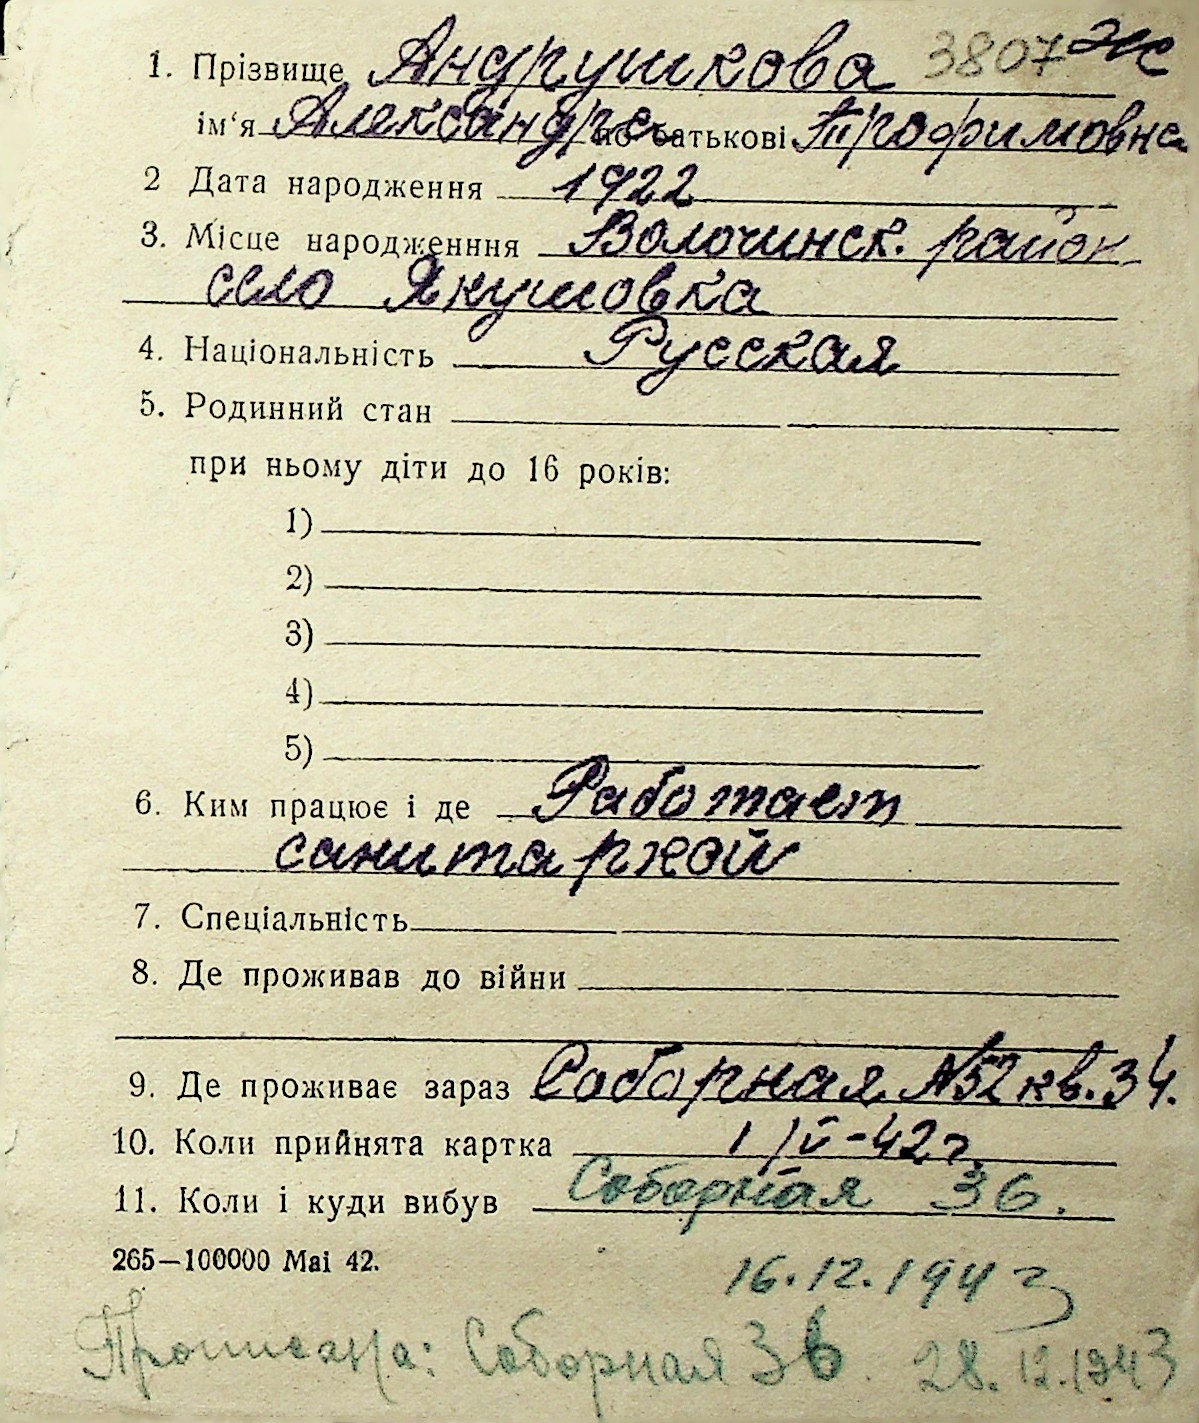 1. Прізвище Андрушкова 3807
ім‘я Александра по батькові Трофимовна
2 Дата народження 1922
3. Місце народженння Волочинск. район
село Якушовка
4. Національність Русская
5. Родинний стан
при ньому діти до 16 років:
1)
2)
3)
4)
5)
6. Ким працює і де Работает
санитаркой
7. Спеціальність
8. Де проживав до війни
9. Де проживає зараз Соборная №52 кв. 34.
10. Коли прийнята картка 1/V-42 г.
11. Коли і куди вибув Соборная 36.
265—100000 Mai 42.
16.12.194
Прописана: Соборная 36. 28.12.1943